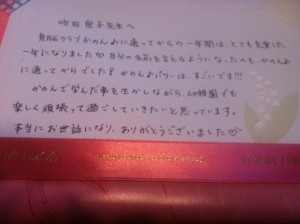 吹田 聖子先生へ
育脳クラブかのんぷに通ってからの一年間は、とても充実した
一年になりました♡自分の名前を言えるようになったのも、かのんぷ
に通ってからでした！かのんぷパワーは、すごいです!!!
かのんで学んだ事を生かしながら、幼稚園でも
楽しく頑張って過ごしていきたいと思っています。
本当にお世話になり、ありがとうございました♡